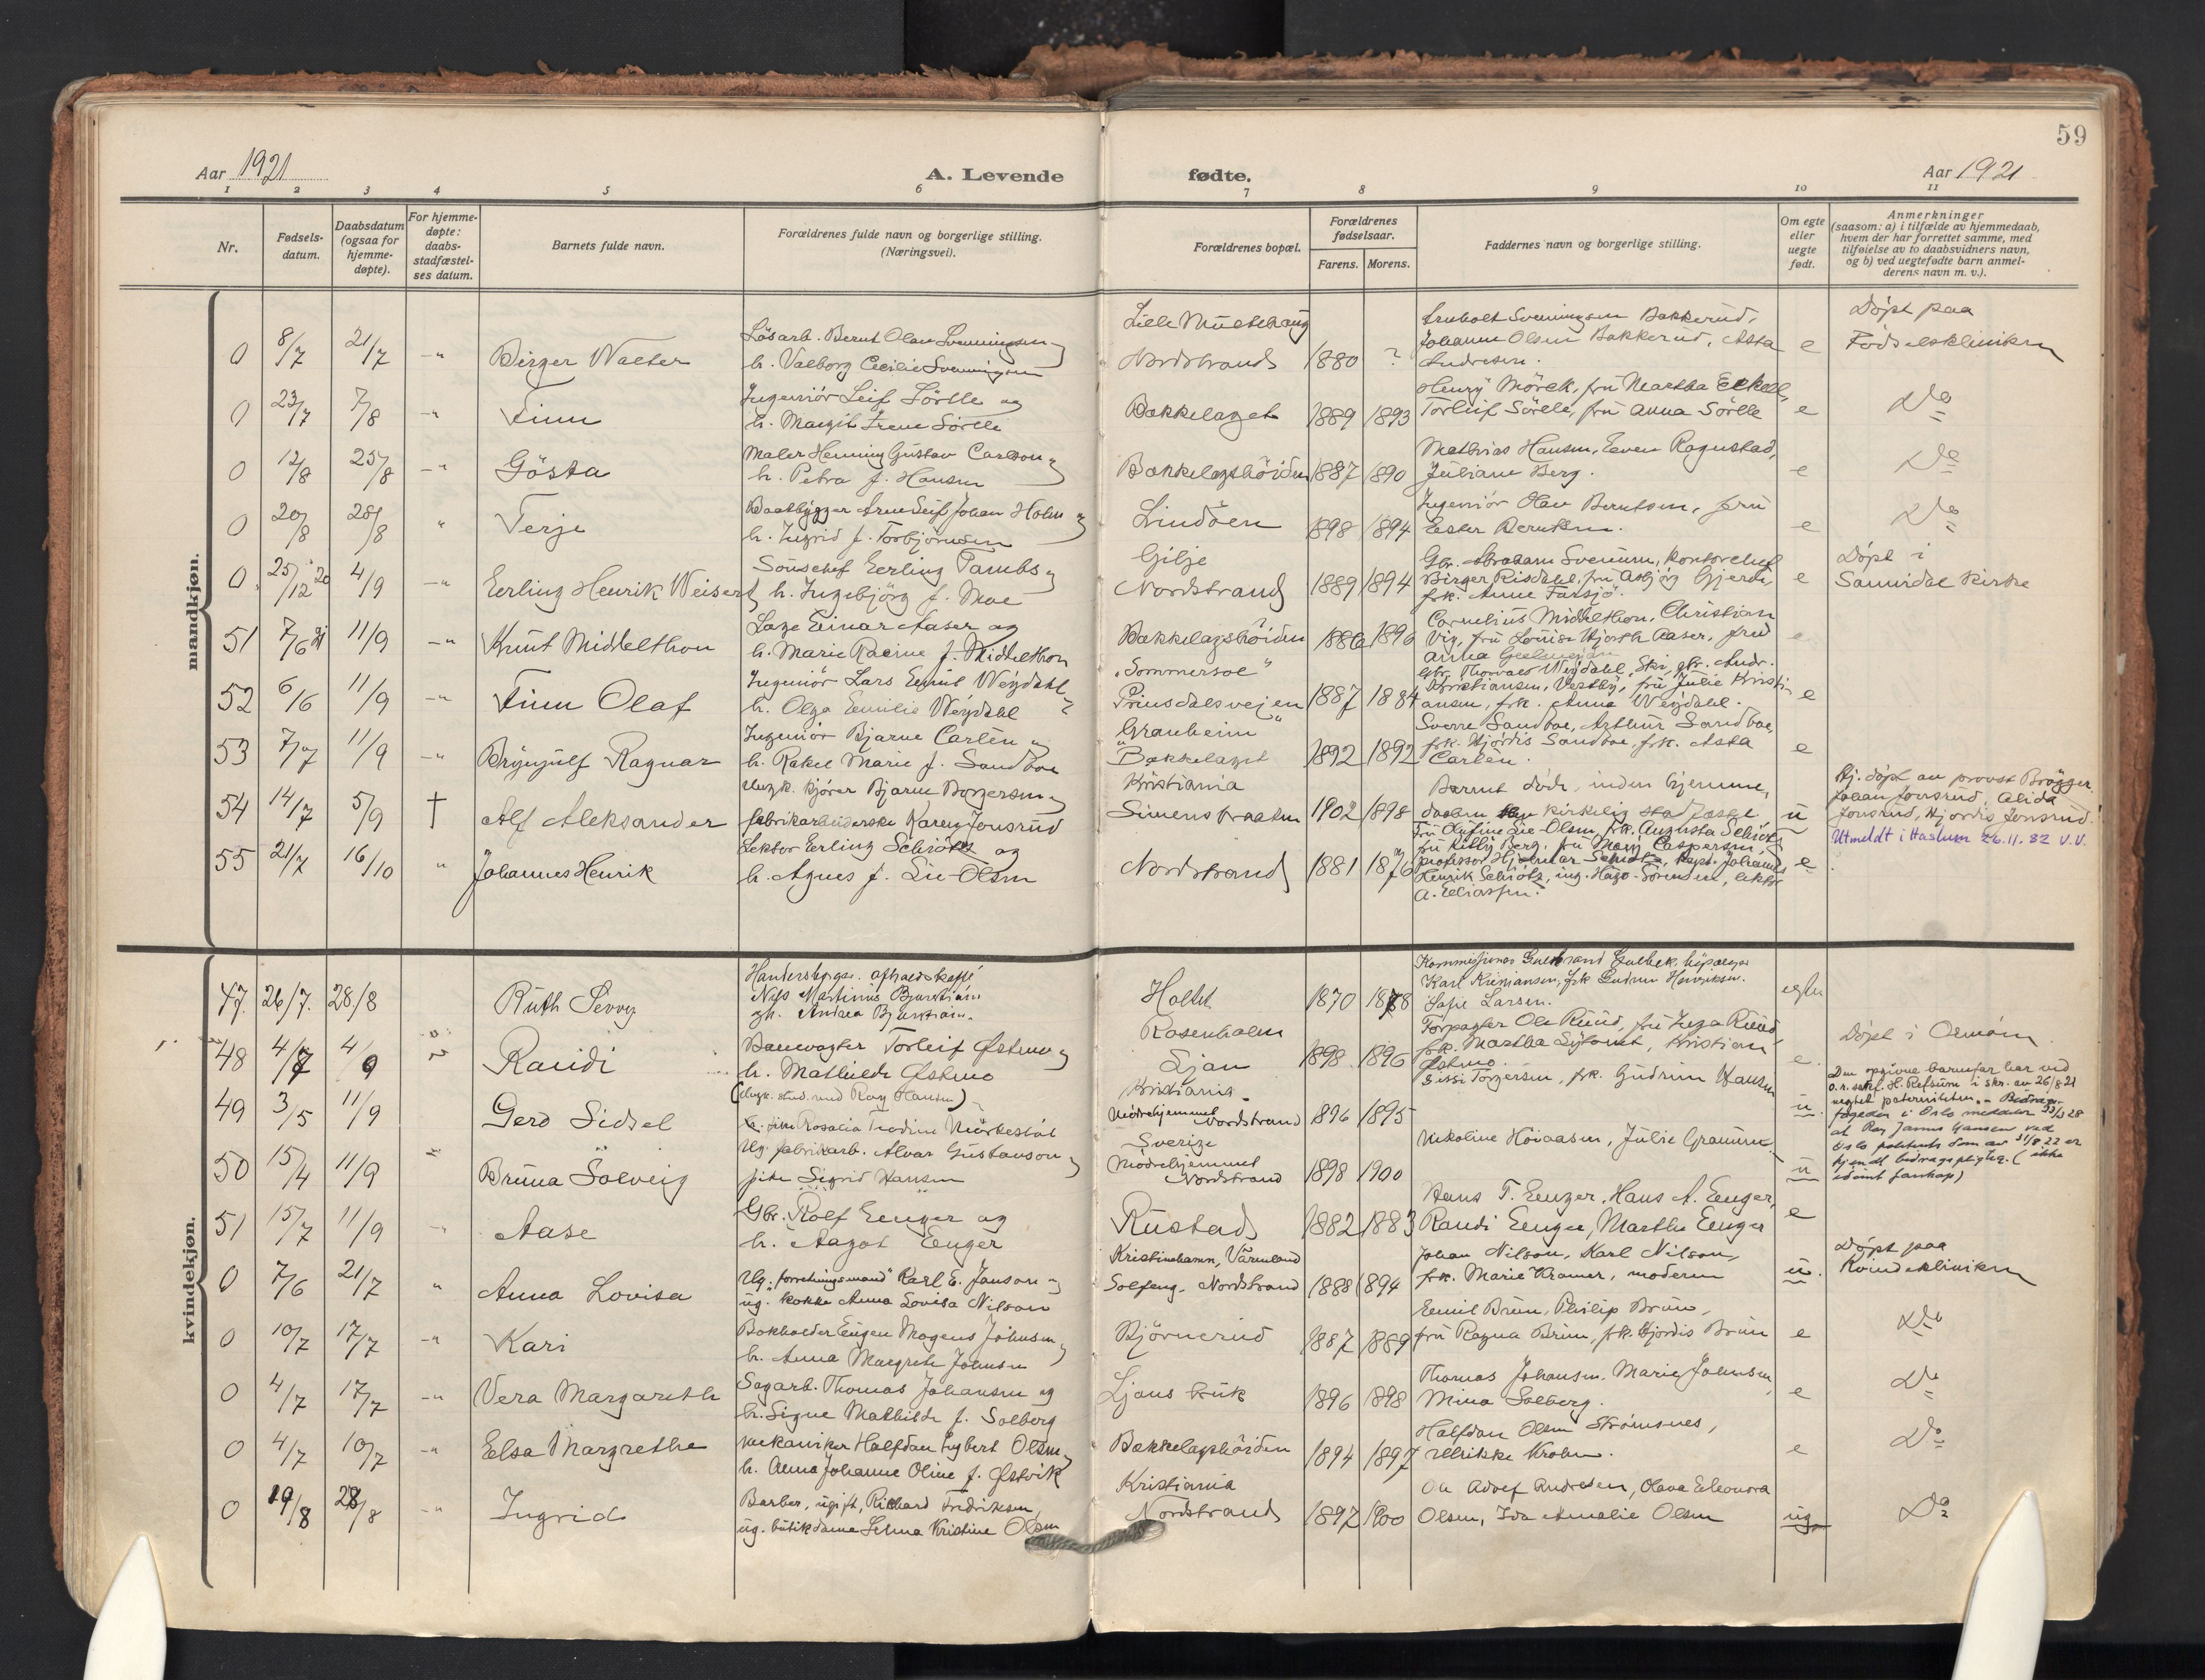 59
Aar 1921
A. Levende
fødte.
Aar 1921
1 2 3 4 5 6 7 8 9 10 11
Nr.
Fødsels-
datum.
Daabsdatum
(ogsaa for
hjemme-
døpte).
For hjemme-
døpte:
daabs-
stadfæstel-
ses datum.
Barnets fulde navn.
Forældrenes fulde navn og borgerlige stilling.
(Næringsvei).
Forældrenes bopæl.
Forældrenes
fødselsaar.
Farens. Morens.
Faddernes navn og borgerlige stilling.
Om egte
eller
uegte
født.
Anmerkninger
(saasom: a) i tilfælde av hjemmedaab,
hvem der har forrettet samme, med
tilføielse av to daabsvidners navn,
og b) ved uegtefødte barn anmel-
derens navn m. v.).
mandkjøn.
0 8/7 21/7 -"- Birger Walter
Løsarb. Bernt Olav Svenningsen
h. Valborg Cecilie Svenningsen
Nordstrand 1880 ?
Johanne Olsen Bakkerud, Asta
Andresen.
e
Døpt paa
Fødselskliniken
0 23/7 7/8 -"- Finn
Ingeniør Leif Sörlle og
h. Margit Irene Sörlle
Bækkelaget 1889 1893
Henry Mörck, fru Martha Eckell,
Torleif Sörlle, fru Anna Sörlle
e Do
0 12/8 25/8 -"- Gösta
Maler Henning Gustav Carlson og
h. Petra f. Hansen
Bækkelagshöiden 1887 1890
Mathias Hansen, Even Rognstad,
Juliane Berg.
e Do
0 20/8 28/8 " Terje
Baatbygger Arne Leif Johan Holm og
h. Ingrid f. Torbjörnsen
Lindöen 1898 1894
Ingeniör Olav Berntsen, fru
Ester Berntsen.
e Do
0 25/12 20 4/9 -"- Erling Henrik Weisert
Erling Tambs og
h. Ingebjörg f. Moe
Gilje
Nordstrand 1889 1894
Gbr. Abraham Svenum, kontorchef
Birger Risdahl, fru Asbjörg Gjerde,
frk. Anne
e
Døpt i
Sannidal kirke
51 7/6 21 11/9 -"- Knut Middelthon
Læge Einar Aaser og
h. Marie Racine f. Middelthon
Bækkelagshöiden 1886 1896
Cornelius Middelthon, Christian
Vig, fru Louise Hjorth Aaser, fru
Anna
e
52 6/6 11/9 -"- Finn Olaf
Ingeniør Lars Emil Weydahl og
h. Olga Emilie Weydahl
"Sommersol"
Prinsdalsvejen 1887 1884
Gbr. Thorvald Weydahl, Ski, gbr. Andr.
Kristiansen, Vestby, fru Julie Kristi-
ansen, frk. Anna Weydahl.
e
53 7/7 11/9 -"- Brynjulf Ragnar
Ingeniör Bjarne Carlén og
h. Rakel Marie f. Sandboe
"Granheim"
Bækkelaget 1892 1892
Sverre Sandboe, Arthur Sandboe,
frk. Hjördis Sandboe, frk. Asta
Carlén.
e
54 14/7 5/9 † Alf Aleksander
Bjarne Borgersen og
fabrikarbeiderske Karen Jonsrud
Kristiania
Simensbraaten 1902 1898
Barnet döde, inden hjemme-
daaben kirkelig
u
Hj. døpt av provst Brøgger.
Johan Jonsrud, Alida
Jonsrud, Hjördis Jonsrud.
55 21/7 16/10 " Johannes Henrik
Lektor Erling Schiötz og
h. Agnes f. Lie-Olsen
Nordstrand 1881 1876
Fru Olufine Lie-Olsen, frk. Augusta Schiötz,
fru Kitty Berg, fru Mary Caspersen,
professor Hjalmar Schiötz, kapt. Johannes
Henrik Schiötz, ing. Hagb. Sörensen, lektor
A. Eliassen.
e
Utmeldt i Haslum 26.11.32 V.V.
kvindekjøn.
47. 26/7. 28/8 Ruth Sevvy
Nils Martinius Bjerktian
gh. Andrea Bjerktian.
Holtet 1870 1878
Karl Kristiansen, frk Gudrun Henriksen.
Sofie Larsen.
egte
48 4/7 4/9 Randi
Banevogter Torleif Østmo og
h. Mathilde Østmo
Rosenholm
Ljan 1898 1896
Forpagter Ole Ruud, fru Inga Ruud
frk. Martha Kristian
Østmo.
e
Døpt i
49 3/5 11/9 Gerd Sidsel
(Ungk. stud. med Roy Hansen)
Kristiania
Mødrehjemmet
Nordstrand 1896 1895
Torgersen, frk. Gudrun Hansen
u
Den opgivne barnefar har ved
o.r.sakf. H. Refsum i skr. av 26/8 21
negtet paterniteten. - Bidrags-
fogeden i Oslo meddeler
at Roy James Hansen ved
Oslo politirets dom av 31/8 22 er
kjendt bidragspligtig. (ikke
idømt farskap)
50 15/4 11/9 -"- Bruna Solveig
Ug. fabrikarb. Alvar Gustavson og
pike Sigrid Hansen
Sverige
Mödrehjemmet
Nordstrand 1898 1900
Nikoline Höiaasen, Julie
u
51 15/7 11/9 -"- Aase
Gbr. Rolf Enger og
h. Aagot Enger
Rustad 1882 1883
Hans T. Enger, Hans A. Enger,
Randi Enger, Marthe Enger
e
0 7/6 21/7 " Anna Lovisa
Ug. "forretningsmand" Karl E. Janson og
ug. kokke Anna Lovisa Nilson
Kristinehamn, Värmland
Solfeng. Nordstrand 1888 1894
Johan Nilson, Karl Nilson,
frk. Marie Kramer, moderen
u.
Døpt paa
Kvindekliniken
0 10/7 17/7 -"- Kari
Bokholder Eugen Mogens Johnsen og
h. Anna Margrethe Johnsen
Bjørnerud 1887 1889
Emil Bruun, Philip Bruun,
fru Ragna Bruun, frk. Hjördis Bruun
e Do
0 4/7 17/7 -"- Vera Margareth
Sagarb. Thomas Johansen og
h. Signe Mathilde f. Solberg
Ljans bruk 1896 1898
Thomas Johansen, Marie Johnsen,
Mina Solberg.
e Do
0 4/7 10/7 -"- Elsa Margrethe
Mekaniker Halfdan Engbert Olsen og
h. Anna Johanne Oline f. Østvik
Bækkelagshöiden 1894 1897
Halfdan Olsen Strömsnes,
Ulrikke Krohn.
e Do
0 19/8 28/8 -"- Ingrid
Barber, ugift, Richard Fredriksen,
ug. butikdame Selma Kristine Olsen
Kristiania
Nordstrand 1897 1900
Ole Adolf Andresen, Olava Eleonora
Olsen, Ida Amalie Olsen
ug Do